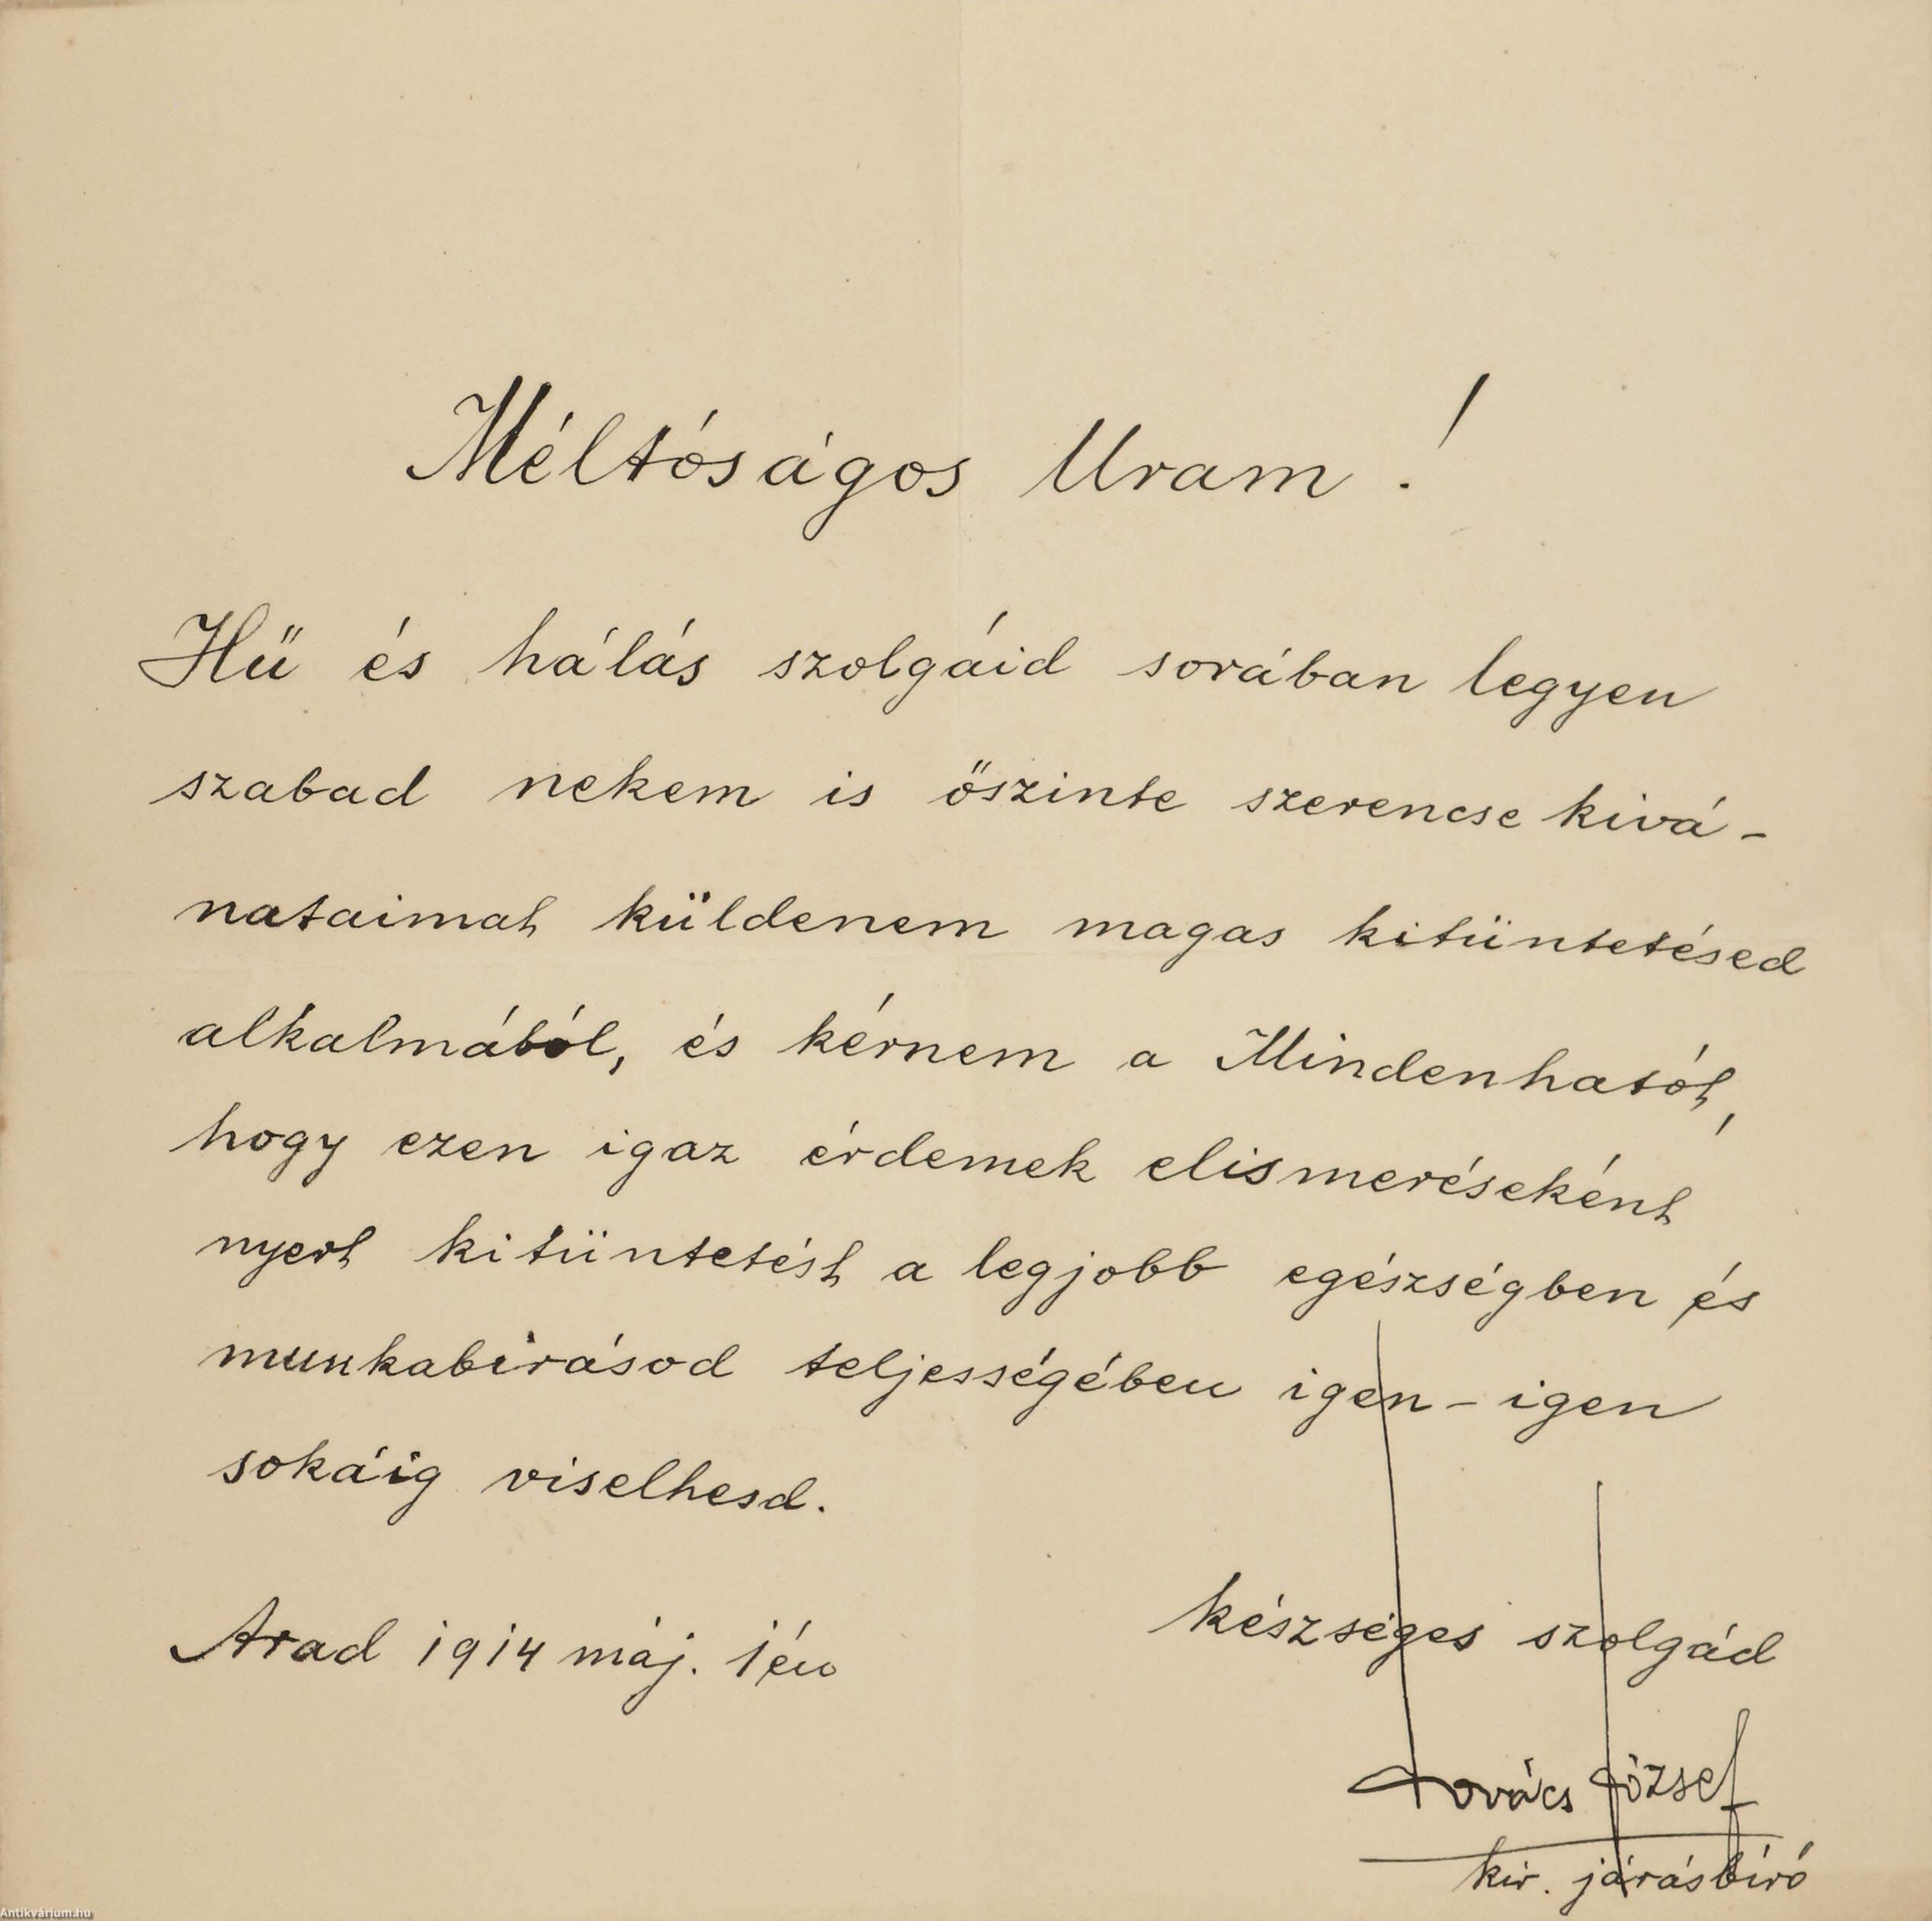 Méltóságos Uram!
Hű és hálás szolgáid sorában legyen
szabad nekem is őszinte szerencse kivá-
nataimat küldenem magas kitüntetésed
alkalmából, és kérnem a Mindenhatót,
hogy ezen igaz érdemek elismeréseként
nyert kitüntetést a legjobb egészségben és
munkabirásod teljességében igen-igen
sokáig viselhesd.
készséges szolgád
Arad 1914 máj. 1én
Kovács József
kir. járásbíró
Antikvárium.hu